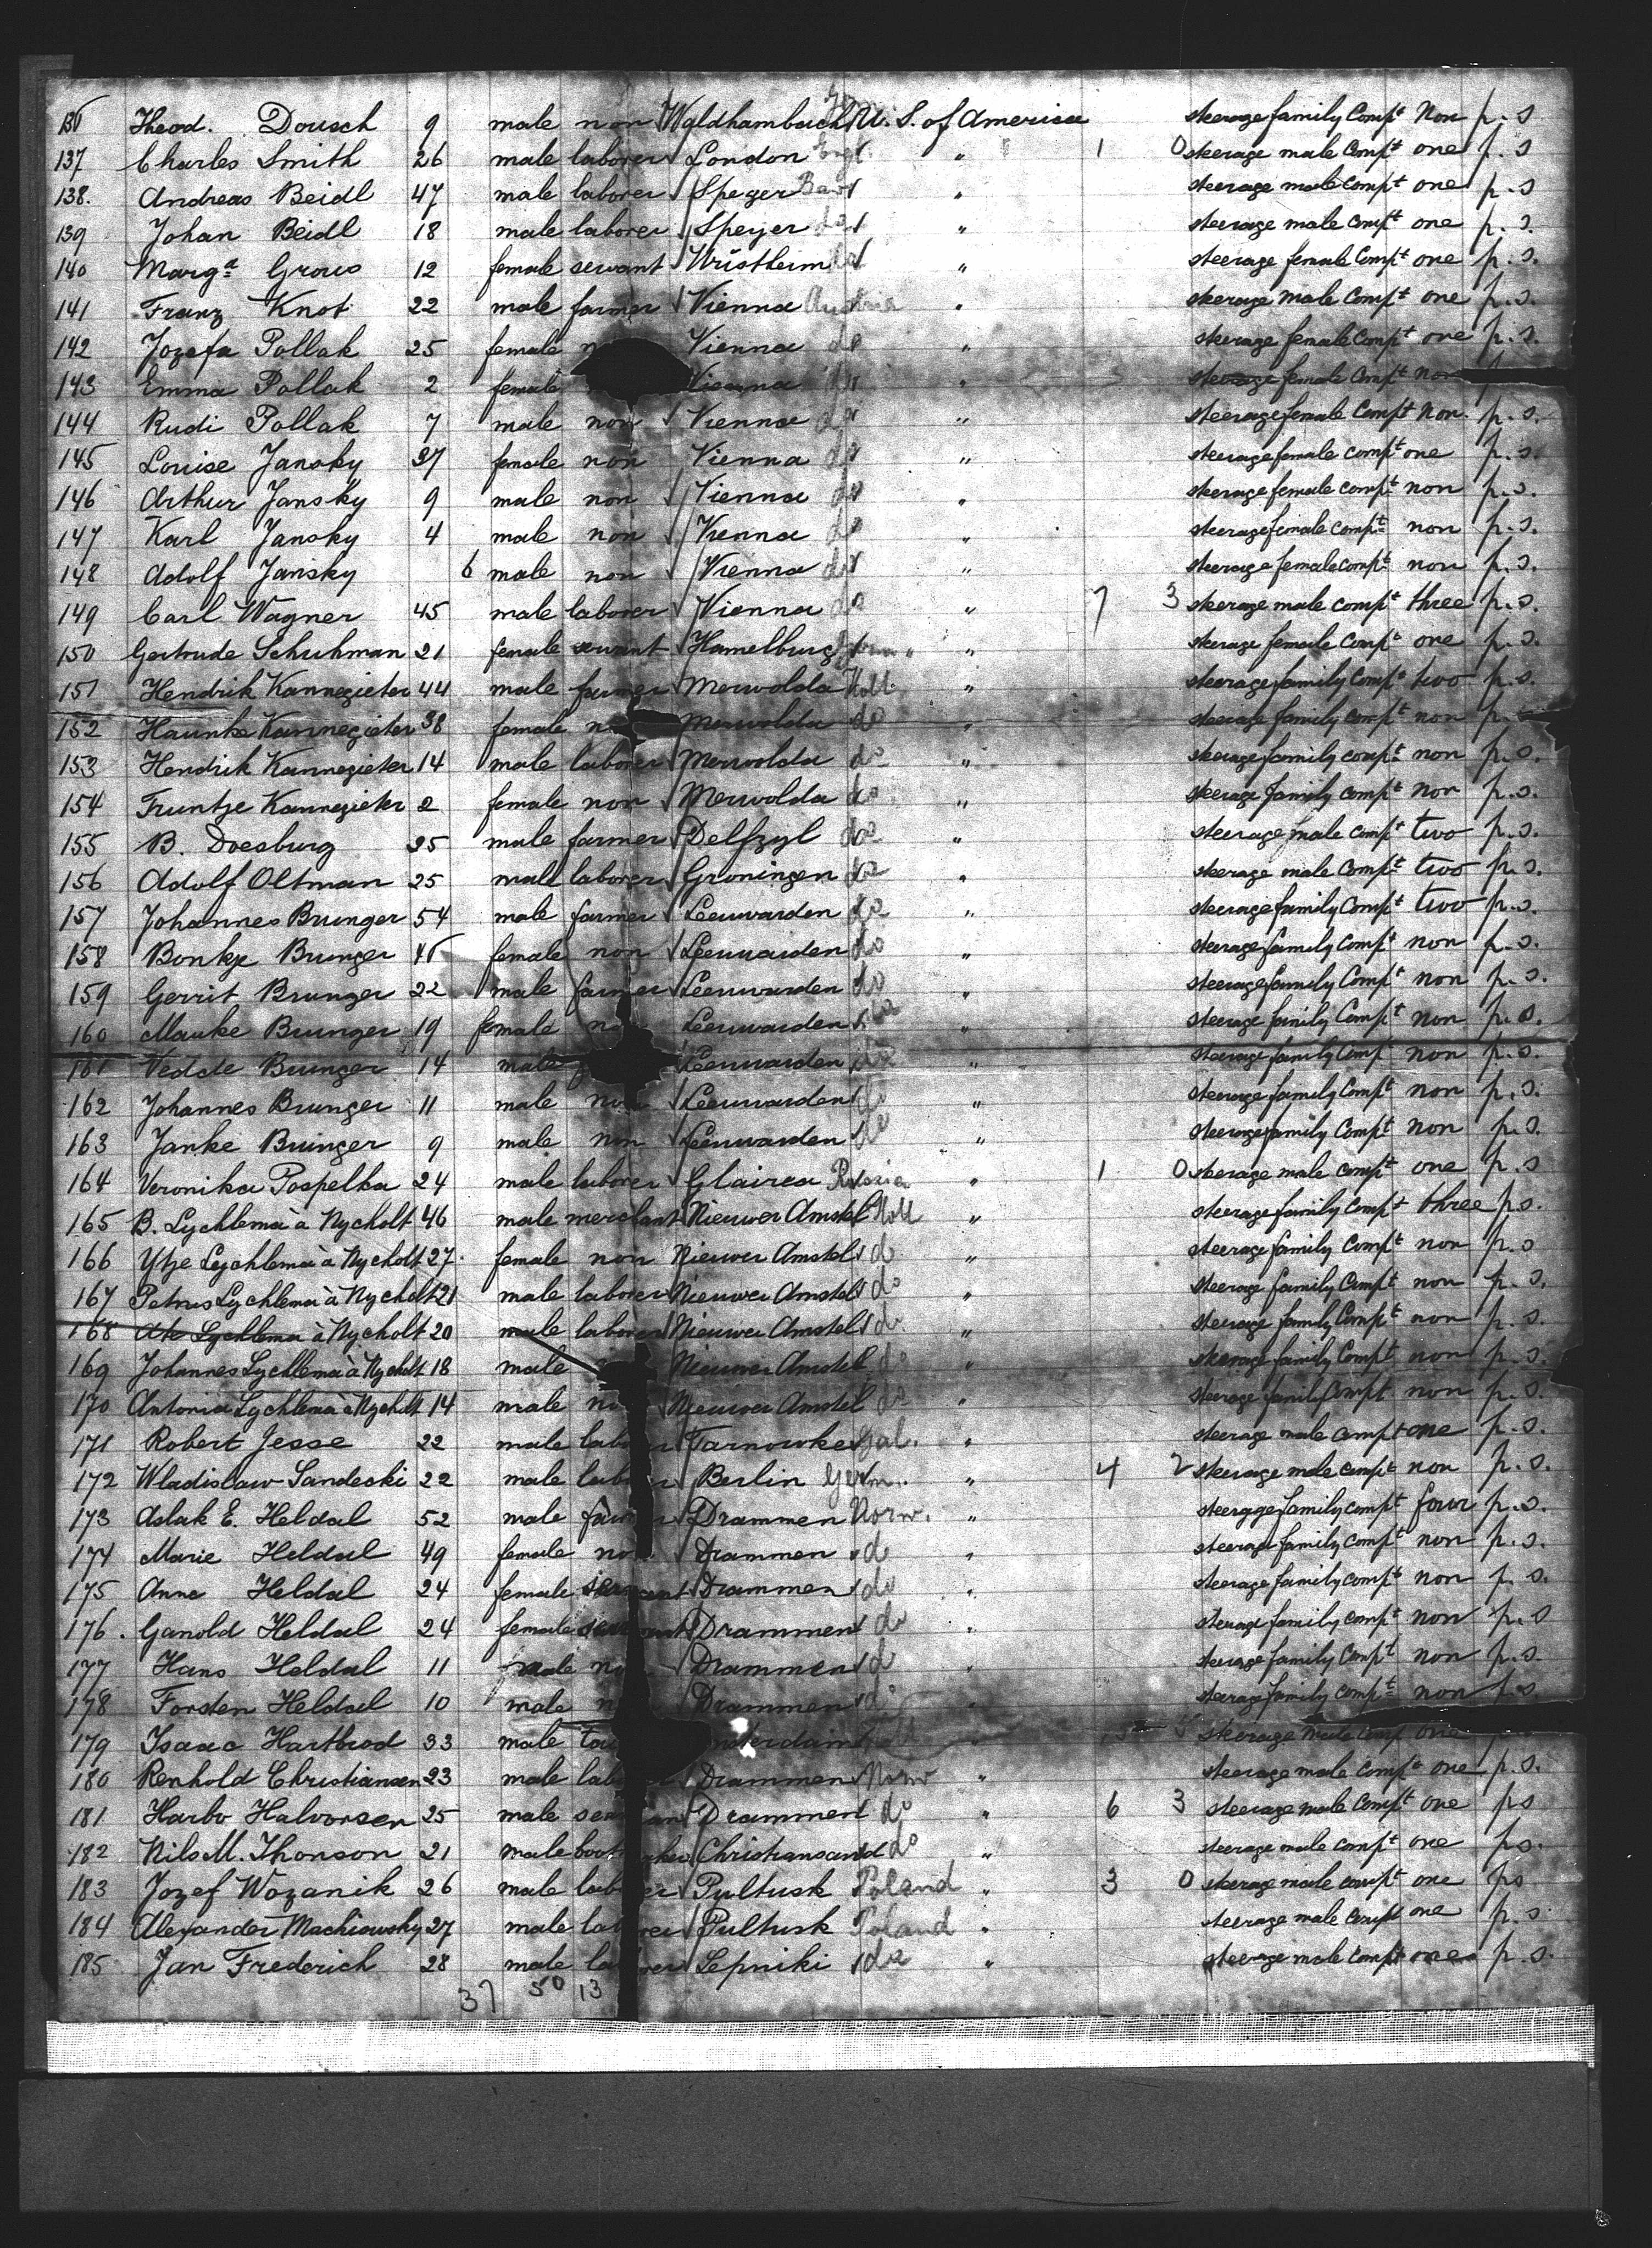 136 Theod. Dousch 9 male non Waldhambach Ger. U. S. of America steerage family Compt Non p. s
137 Charles Smith 26 male laborer London Engl. " 1 0 steerage male Compt one p. s
138. Andreas Beidl 47 male laborer Speyer Bav " steerage male Compt one p. s
139 Johan Beidl 18 male laborer Speyer do " steerage male Compt one p. s.
140 Marga Grows 12 female servant do " steerage female Compt one p. s.
141 Franz Knot 22 male farmer Vienna Austria " steerage male Compt one p. s.
142 Jozefa Pollak 25 female Vienna do " steerage female Compt one p. s.
143 Emma Pollak 2 female Vienna do " steerage female Compt non
144 Rudi Pollak 7 male non Vienna do " steerage female Compt Non. p. s.
145 Louise Jansky 27 female non Vienna do " steerage female compt one p. s.
146 Arthur Jansky 9 male non Vienna do " steerage female compt non p. s.
147 Karl Jansky 4 male non Vienna do " steerage female compt non p. s.
148 Adolf Jansky 6 male non Vienna do " steerage female compt non p. s.
149 Carl Wagner 45 male laborer Vienna do " 7 3 steerage male compt three p. s.
150 Gertrude Schuhman 21 female servant Hamelburg Germ " " steerage female Compt one p. s.
151 Hendrik Kannegieter 44 male farmer Merwolda Holl. " steerage family Compt two p. s.
152 Haunke Kannegieter 38 female non Merwolda do " steerage family Compt non p.
153 Hendrik Kannegieter 14 male laborer Merwolda do " steerage family compt non p. s.
154 Fruntje Kannegieter 2 female non Merwolda do " steerage family compt non p. s.
155 B. Doesburg 25 male farmer Delfzyl do " steerage male compt two p. s.
156 Adolf Oltman 25 male laborer Groningen do " steerage male Compt two p. s.
157 Johannes Brunger 54 male farmer Leeuwarden do " steerage family Compt two p. s.
158 Bonkje Brunger female non Leeuwarden do " steerage family Compt non p. s.
159 Gerrit Brunger 22 male farmer Leeuwarden do " steerage family Compt non p. s.
160 Mauke Brunger 19 female non Leeuwarden do " steerage family Compt non p. s.
161 Vedde Brunger 14 male Leeuwarden do " steerage family Compt non p. s.
162 Johannes Brunger 11 male non Leeuwarden do " steerage family Compt non p. s.
163 Janke Brunger 9 male non Leeuwarden do " steerage family Compt non p. s.
164 Veronika Pospelka 24 male laborer Glairca Russia " 1 0 steerage male compt one p. s
165 B. Lychlema à Nycholt 46 male merchant Nieuwer Amstel Holl " steerage family Compt three p s.
166 Ytje Lychlema à Nycholt 27. female non Nieuwer Amstel do " steerage family Compt non p. s
167 Petrus Lychlema à Nycholt 21 male laborer Nieuwer Amstel do " steerage family Compt non p. s.
168 Ate Lychlema à Nycholt 20 male laborer Nieuwer Amstel do " steerage family Compt non p. s.
169 Johannes Lychlema à Nycholt 18 male Nieuwer Amstel do " steerage family Compt non p. s.
170 Antonia Lychlema à Nycholt 14 male non Nieuwer Amstel do " steerage family Compt non p. s.
171 Robert Jesse 22 male laborer Tarnowke Gal. " steerage male compt one p. s.
172 Wladislaw Sandecki 22 male laborer Berlin Germ. " 4 2 steerage male compt non p. s.
173 Aslak E. Heldal 52 male farmer Drammen Norw. " steerage family compt four p. s.
174 Marie Heldal 49 female non Drammen do " steerage family compt non p. s.
175 Anne Heldal 24 female servant Drammen do " steerage family compt non p. s.
176. Ganold Heldal 24 female servant Drammen do " steerage family compt non p. s
177 Hans Heldal 11 male non Drammen do " steerage family Compt non p. s.
178 Torsten Heldal 10 male Drammen do " steerage family compt non p. s.
179 Isaac Hartbrod 33 male steerage male Comp one
180 Renhold Christiansen 23 male laborer Drammen Norw " steerage male Compt one p. s.
181 Harbo Halvorsen 25 male seaman Drammen do " 6 3 steerage male Compt one p s
182 Nils M. Thonson 21 male bootmaker Christiansand do " steerage male compt one p s.
183 Jozef Wozanik 26 male laborer Pultusk Poland " 3 0 steerage male compt one p s
184 Alexander Machiowsky 27 male laborer Pultusk Poland " steerage male Compt one p. s
185 Jan Frederich 28 male laborer Lepniki do " steerage male Compt one p. s.
37 50 13